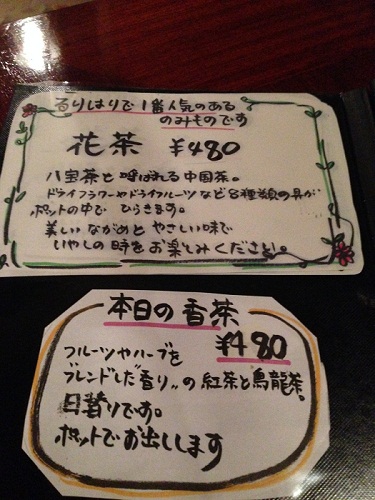 るりはりで1番人気のある
のみものです
花茶 ¥480
八宝茶と呼ばれる中国茶。
ドライフラワーやドライフルーツなど8種類の具が
ポットの中でひらきます。
美しいながめとやさしい味で
いやしの時をお楽しみください。
本日の香茶
¥480
フルーツやハーブを
ブレンドした"香り"の紅茶と烏龍茶。
日替りです。
ポットでお出しします